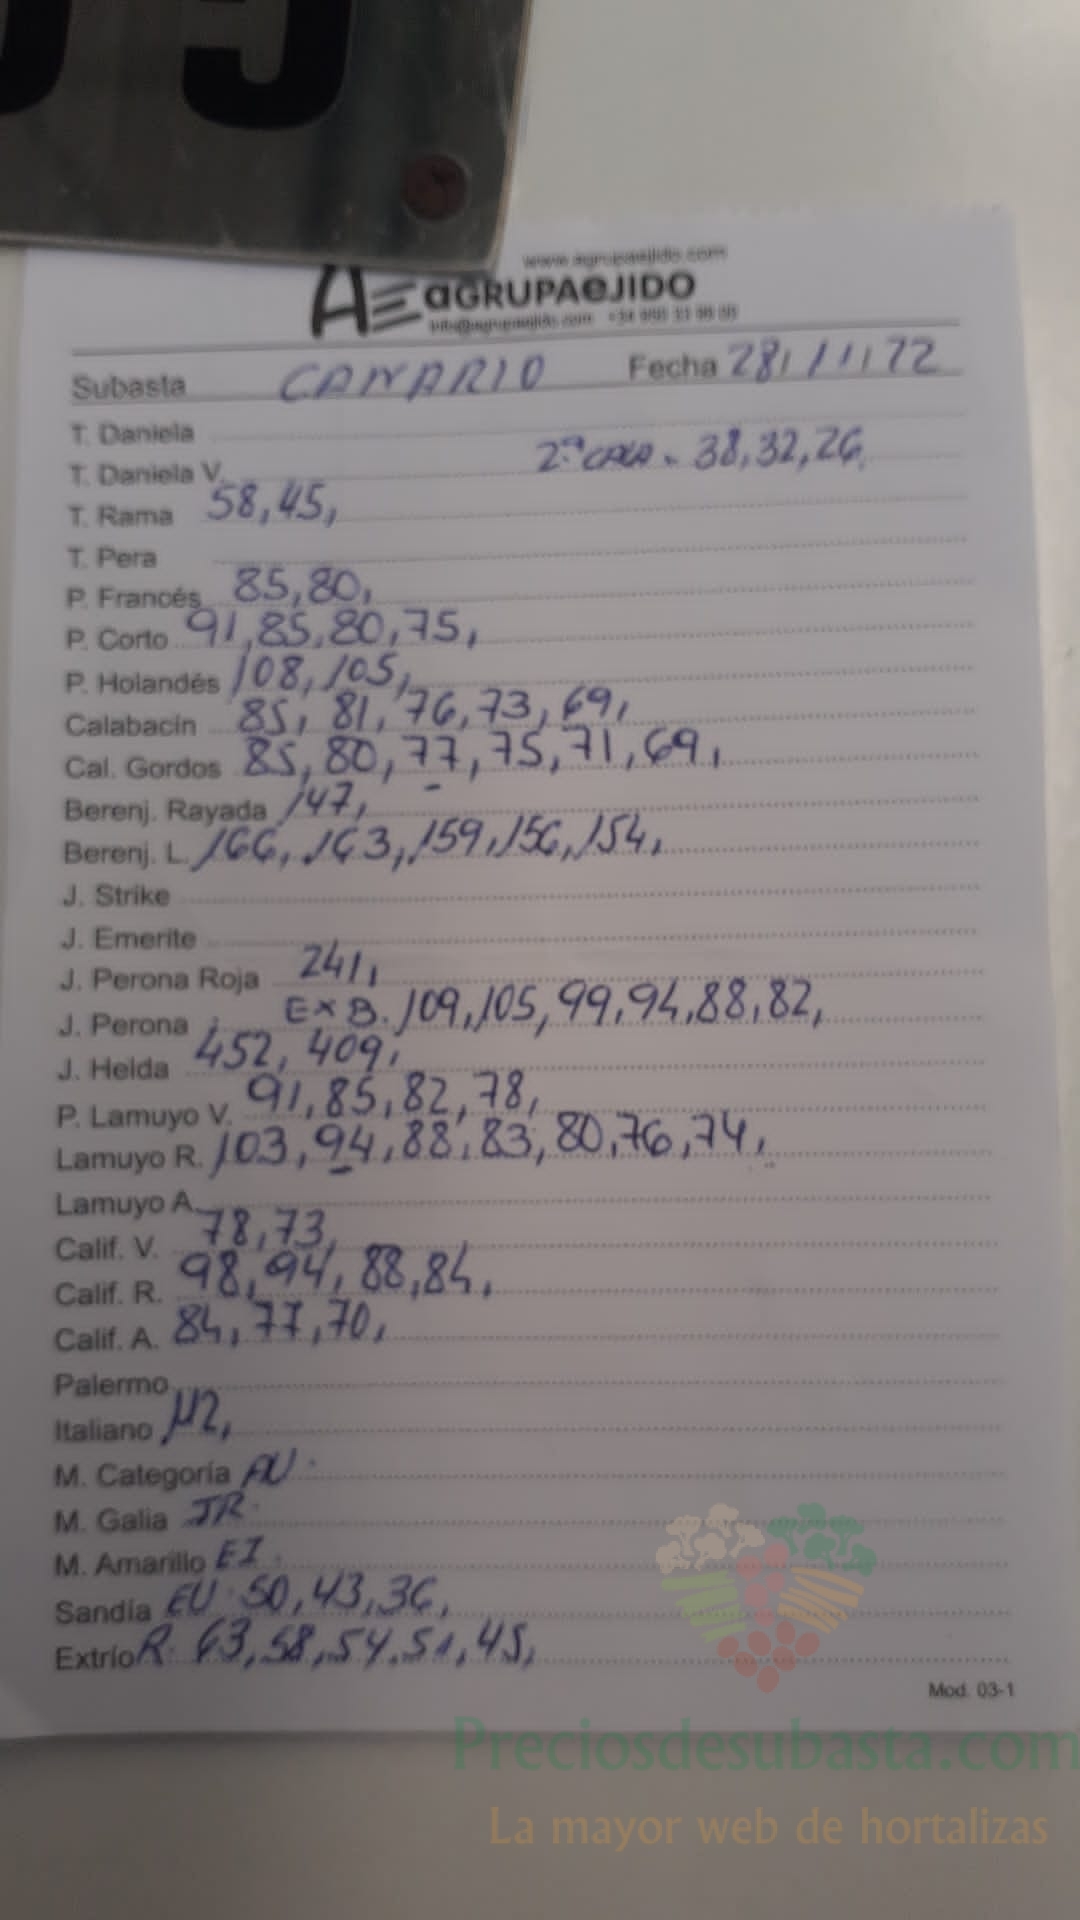 5
www.agrupaejido.com
AE aGRUPAeJIDO
info@agrupaejido.com
Subasta CANARIO Fecha 28/11/22
T. Daniela
T. Daniela V. 2ªCALA - 38,32,26,
T. Rama 58,45,
T. Pera
P. Francés 85,80,
P. Corto 91,85,80,75,
P. Holandés 108,105,
Calabacín 85,81,76,73,69,
Cal. Gordos 85,80,77,75,71,69,
Berenj. Rayada 147,
Berenj. L. 166,163,159,156,154,
J. Strike
J. Emerite
J. Perona Roja 241,
J. Perona ExB. 109,105,99,94,88,82,
J. Helda 452,409,
P. Lamuyo V. 91,85,82,78,
Lamuyo R. 103,94,88,83,80,76,74,
Lamuyo A.
Calif. V. 78,73,
Calif. R. 98,94,88,84,
Calif. A. 84,77,70,
Palermo
Italiano 112,
M. Categoría AU.
M. Galia JR.
M. Amarillo EI.
Sandía EU. 50,43,36,
Extrío R. 63,58,54,51,45,
Mod. 03-1
Preciosdesubasta.com
La mayor web de hortalizas